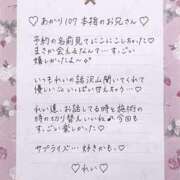 ♡ あかり107 本指のお兄さん ♡
予約の名前見てにこにこしちゃった♡
まさか会えるなんて…すっごい
嬉しかったよ〜♡
いつもれいの話沢山聞いてくれて
優しい
れい達、お話してる時と施術の
時の切り替えいいね 今回も
すっごく楽しかった♡
サプライズ… 好きかも。♡
♡ れい ♡